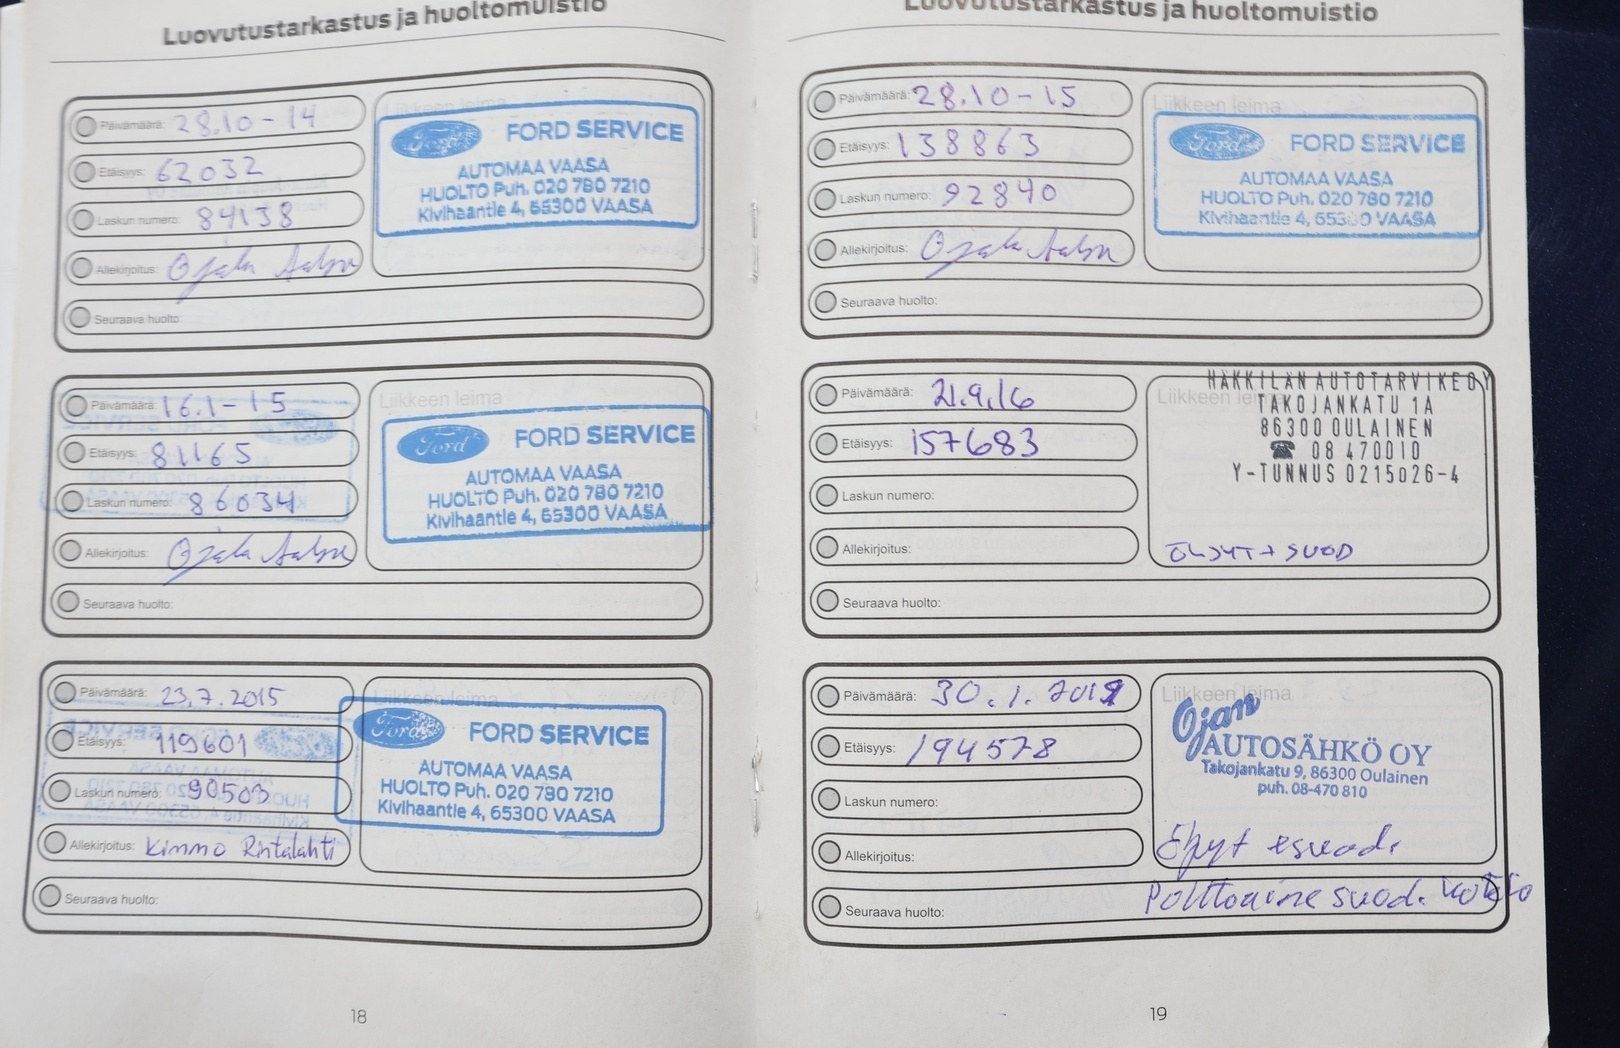 Luovutustarkastus ja huoltomuistio
Päivämäärä: 28.10-14
Etäisyys: 62032
Laskun numero: 84138
Allekirjoitus: Ojala
Seuraava huolto:
Liikkeen leima
Ford FORD SERVICE
AUTOMAA VAASA
HUOLTO Puh. 020 780 7210
Kivihaantie 4, 65300 VAASA
Päivämäärä: 16.1-15
Etäisyys: 81165
Laskun numero: 86034
Allekirjoitus: Ojala
Seuraava huolto:
Liikkeen leima
Ford FORD SERVICE
AUTOMAA VAASA
HUOLTO Puh. 020 780 7210
Kivihaantie 4, 65300 VAASA
Päivämäärä: 23.7.2015
Etäisyys: 119601
Laskun numero: 90503
Allekirjoitus: Kimmo Rintalahti
Seuraava huolto:
Liikkeen leima
Ford FORD SERVICE
AUTOMAA VAASA
HUOLTO Puh. 020 780 7210
Kivihaantie 4, 65300 VAASA
18
Luovutustarkastus ja huoltomuistio
Päivämäärä: 28.10-15
Etäisyys: 138863
Laskun numero: 92840
Allekirjoitus: Ojala
Seuraava huolto:
Liikkeen leima
Ford FORD SERVICE
AUTOMAA VAASA
HUOLTO Puh. 020 780 7210
Kivihaantie 4, 65300 VAASA
Päivämäärä: 21.9.16
Etäisyys: 157683
Laskun numero:
Allekirjoitus:
Seuraava huolto:
Liikkeen leima
HÄKKILÄN AUTOTARVIKE OY
TAKOJANKATU 1A
86300 OULAINEN
☎ 08 470010
Y-TUNNUS 0215026-4
+ SUOD
Päivämäärä: 30.1.2019
Etäisyys: 194578
Laskun numero:
Allekirjoitus:
Seuraava huolto:
Liikkeen leima
Ojan
AUTOSÄHKÖ OY
Takojankatu 9, 86300 Oulainen
puh. 08-470 810
Polttoaine suod.
19